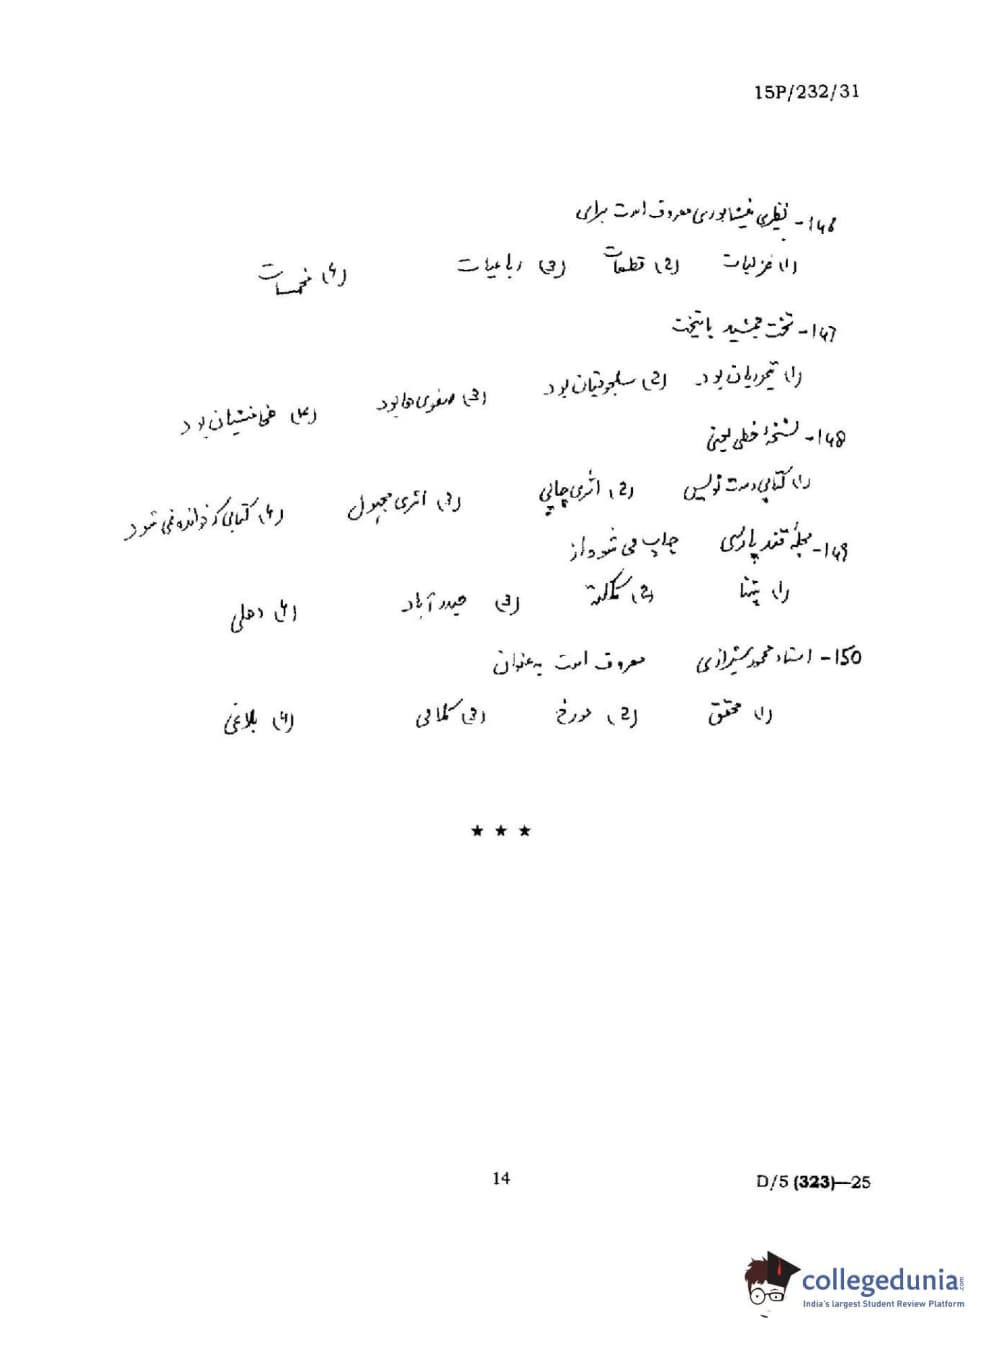 15P/232/31
146- نظیری نیشابوری معروف است برای
(1) غزلیات (2) قطعات (3) رباعیات (4) مخمسات
147- تخت جمشید پایتخت
(1) تیموریان بود (2) سلجوقیان بود (3) صفوی ها بود (4) هخامنشیان بود
148- نسخهٔ خطی یعنی
(1) کتابی دست نویس (2) اثری چاپی (3) اثری مجهول (4) کتابی که خوانده نمی شود
149- مجلهٔ قند پارسی چاپ می شود از
(1) پتنا (2) کلکته (3) حیدرآباد (4) دهلی
150- استاد محمود شیرازی معروف است به عنوان
(1) محقق (2) مورخ (3) کلامی (4) بلاغی
★ ★ ★
14
D/5 (323)—25
collegedunia.com
India's largest Student Review Platform